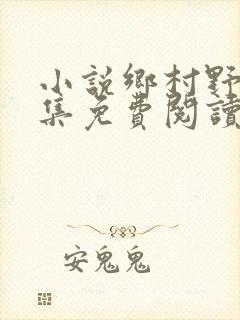 小説鄉村野
集免費閱讀
安鬼鬼